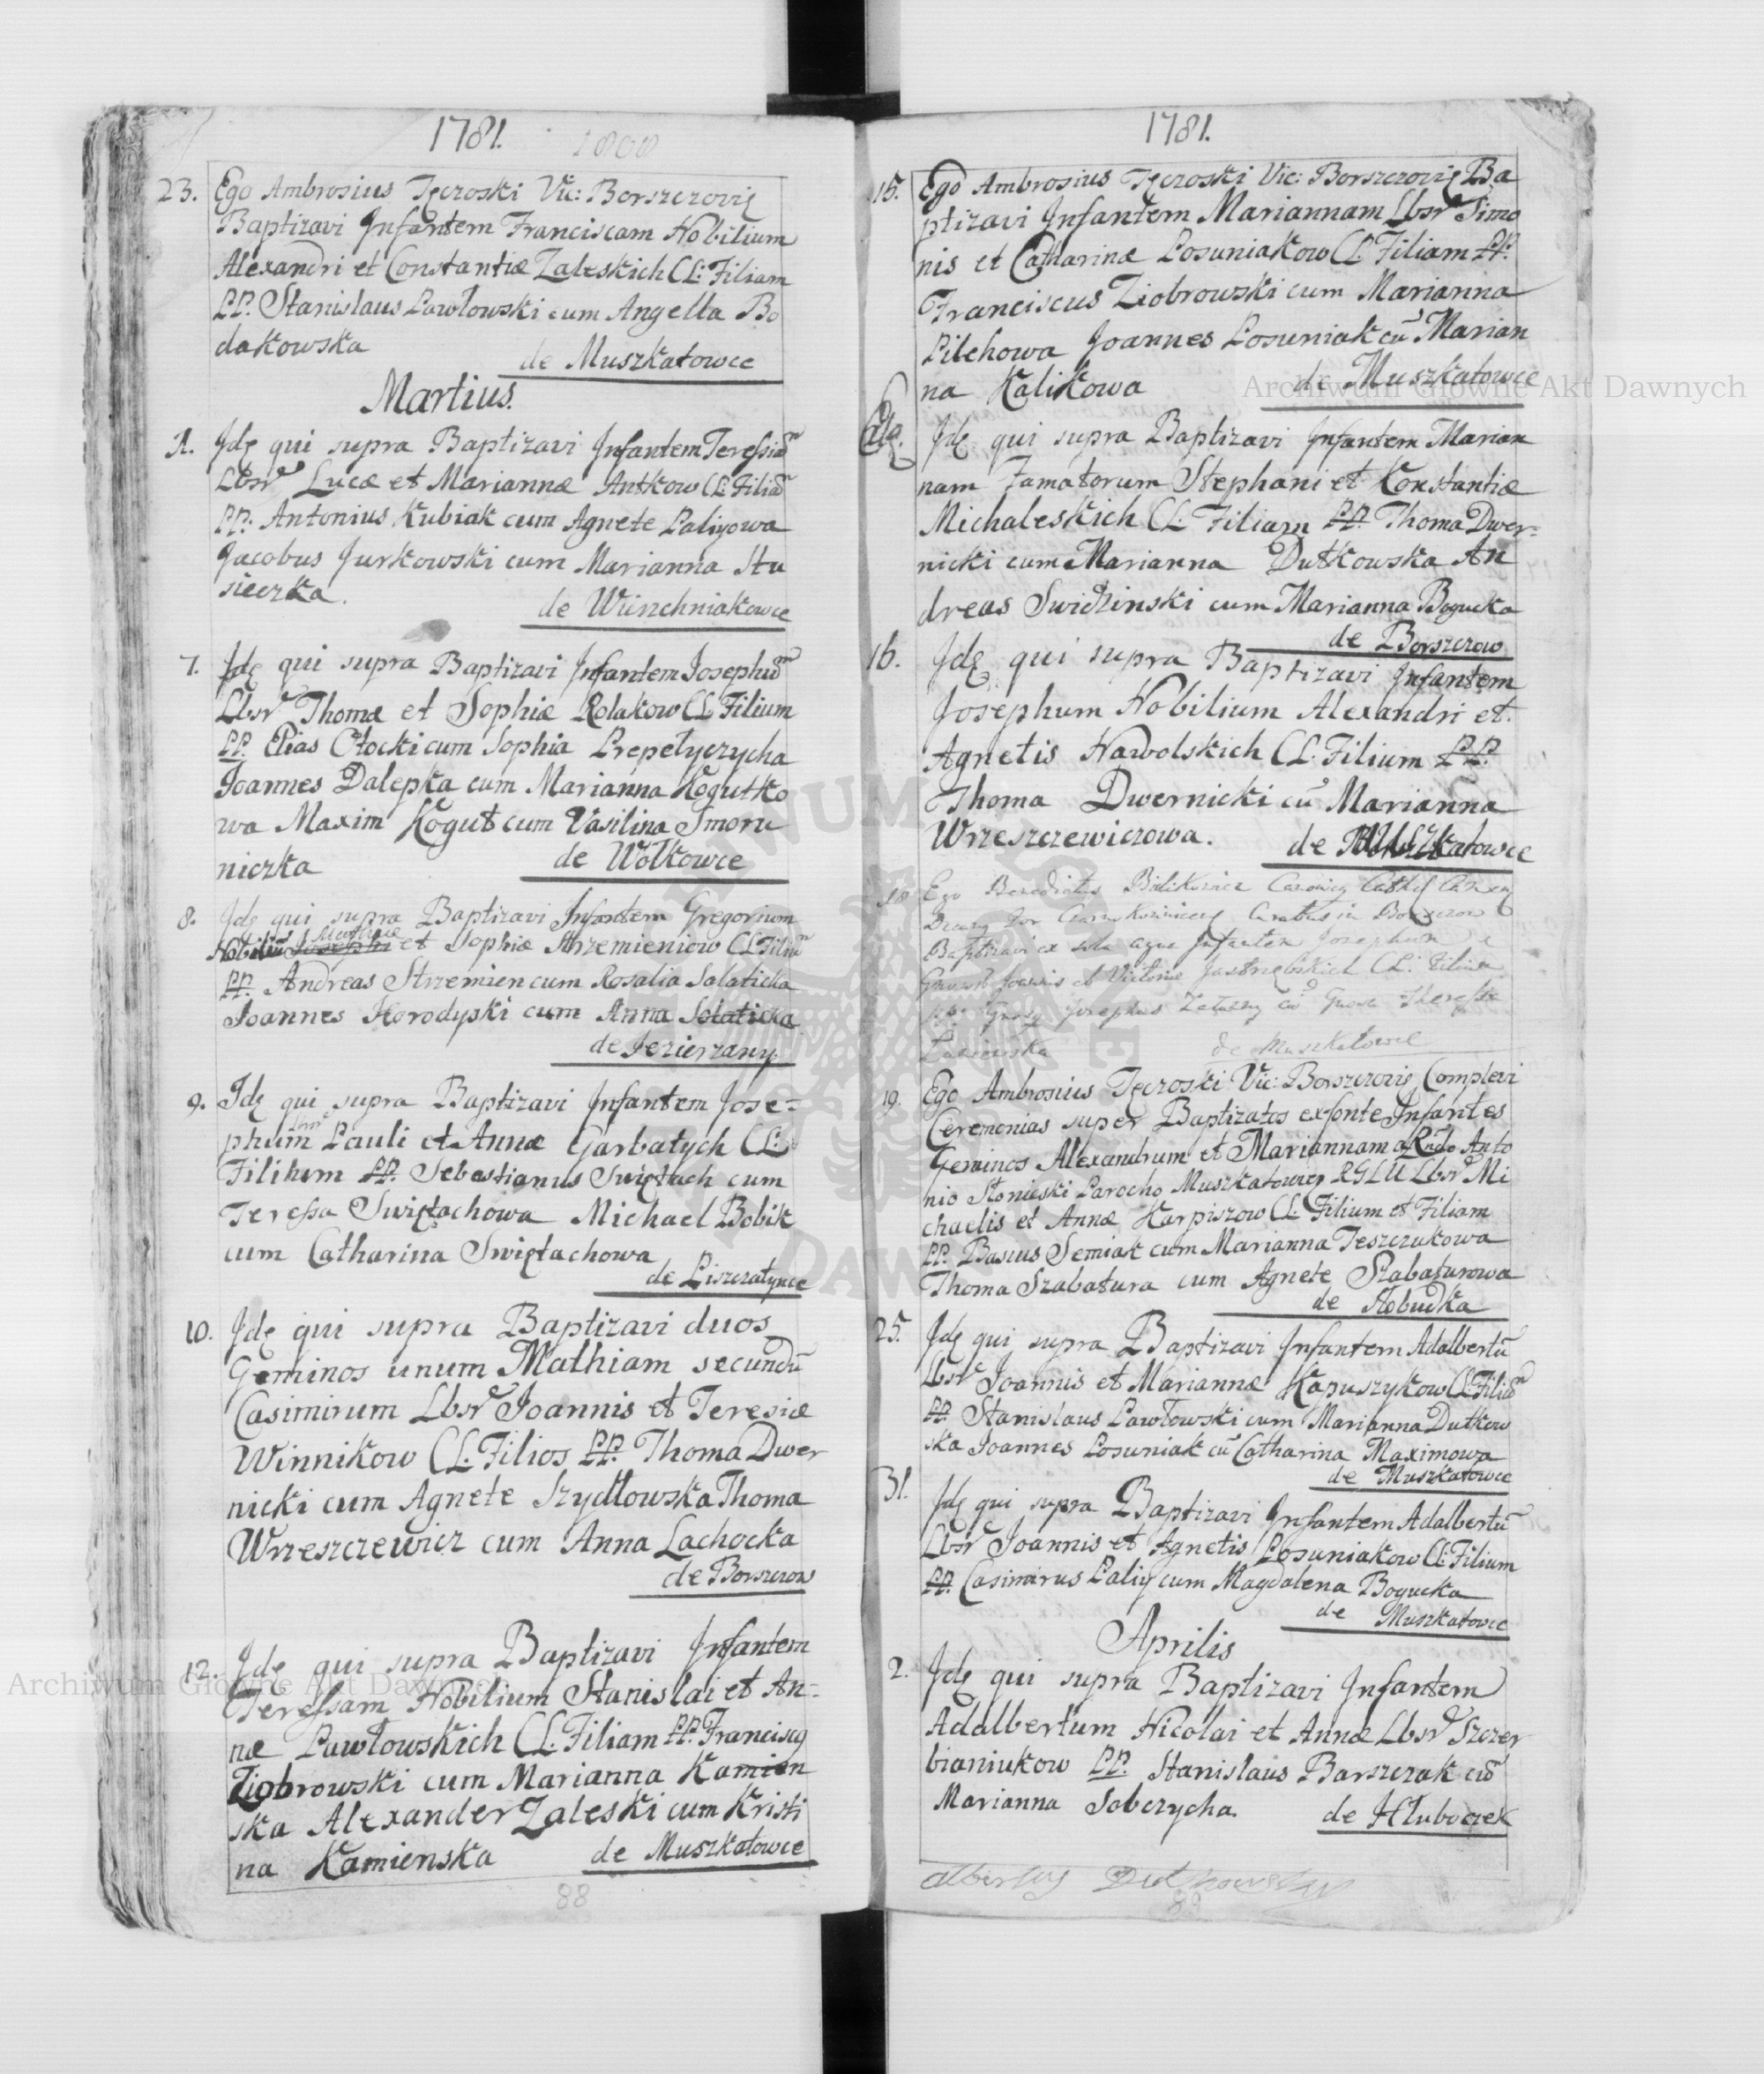 1781.
1808
23. Ego Ambrosius Tęczoski Vic: Borszczovię
Baptizavi Infantem Franciscam Nobilium
Alexandri et Constantiæ Zaleskich CL: Filiam
PP. Stanislaus Pawłowski cum Angella Bo
dakowska
de Muszkatowce
Martius.
1. Idę qui supra Baptizavi Infantem Teressiam
Lbsr Lucæ et Mariannæ Antkow CL: Filiam
PP: Antonius Kubiak cum Agnete Paliyowa
Jacobus Jurkowski cum Marianna Hu
sieczka.
de Wierzchniakowce
7. Idę qui supra Baptizavi Infantem Josephum
Lbsr Thomæ et Sophiæ Rolakow CL Filium
PP. Elias Cłocki cum Sophia Prepełyczycha
Joannes Dalepka cum Marianna Kogutko
wa Maxim Kogut cum Vasilina Smoru
niczka
de Wołkowce
8. Idę qui supra Baptizavi Infantem Gregorium
Nobiliū Josephi et Sophiæ Strzemieniow CL Filiū
PP. Andreas Strzemien cum Rosalia Salaticka
Joannes Horodyski cum Anna Salaticka
de Jezierzany
9. Idę qui supra Baptizavi Infantem Jose=
phum Lbsr Pauli et Annæ Garbatych CL:
Filium PP. Sebastianus Swiętach cum
Teressa Swiętachowa Michael Bobik
cum Catharina Swiętachowa
de Piszczatynce
10. Idę qui supra Baptizavi duos
Geminos unum Mathiam secundū
Casimirum Lbsr Joannis et Teresiæ
Winnikow CL. Filios PP. Thoma Dwer
nicki cum Agnete Szydłowska Thoma
Wrzeszczewicz cum Anna Lachocka
de Borszczow
12. Idę qui supra Baptizavi Infantem
Teressam Nobilium Stanislai et An=
næ Pawłowskich CL. Filiam PP. Franciscq
Ziobrowski cum Marianna Kamien
ska Alexander Zaleski cum Kristi
na Kamienska
de Muszkatowce
88
1781.
15. Ego Ambrosius Tęczoski Vic: Borszczovię Ba
ptizavi Infantem Mariannam Lbsr Simo
nis et Catharinæ Posuniakow CL: Filiam PP.
Franciscus Ziobrowski cum Marianna
Pilchowa Joannes Posuniak cū Marian
na Kalikowa
de Muszkatowce
Idę qui supra Baptizavi Infantem Marian
nam Famatorum Stephani et Konstantiæ
Michaleskich CL: Filiam PP. Thoma Dwer=
nicki cum Marianna Dutkowska An
dreas Swidzinski cum Marianna Bogucka
de Borszczow
16. Idę qui supra Baptizavi Infantem
Josephum Nobilium Alexandri et
Agnetis Nawolskich CL: Filium PP.
Thoma Dwernicki cū Marianna
Wrzeszczewiczowa.
de Muszkatowce
18 Ego Benedictus
Curatus in Borszczow
Baptizavi ex sola aqua Infantem Josephum
Joannis et Victoriæ Jastrzębskich CL: Filium
Josephus Zaleszy cū Theressa
de Muszkatowce
19. Ego Ambrosius Tęczoski Vic: Borszczovię Complevi
Ceremonias super Baptizatos ex fonte Infantes
Geminos Alexandrum et Mariannam a Rndo Anto
nio Słonieski Parocho Muszkatowieę RGLU Lbsr Mi
chaelis et Annæ Karpiszow CL: Filium et Filiam
PP. Basius Semiak cum Marianna Jeszczukowa
Thoma Szabatura cum Agnete Szabaturowa
de Słobudka
25. Idę qui supra Baptizavi Infantem Adalbertū
Lbsr Joannis et Mariannæ Kapuszykow CL: Filiū
PP. Stanislaus Pawłowski cum Marianna Dutkow
ska Joannes Posuniak cū Catharina Maximowa
de Muszkatowce
31. Idę qui supra Baptizavi Infantem Adalbertū
Lbsr Joannis et Agnetis Posuniakow CL: Filium
PP. Casimirus Paliy cum Magdalena Bogucka
de Muszkatowce
Aprilis
2. Idę qui supra Baptizavi Infantem
Adalbertum Nicolai et Annæ Lbsr Szczer
bianiukow PP. Stanislaus Barszczak cū
Marianna Sobczycha.
de Hluboczek
Albertus Dutkowsky
89
Archiwum Główne Akt Dawnych
Archiwum Główne Akt Dawnych